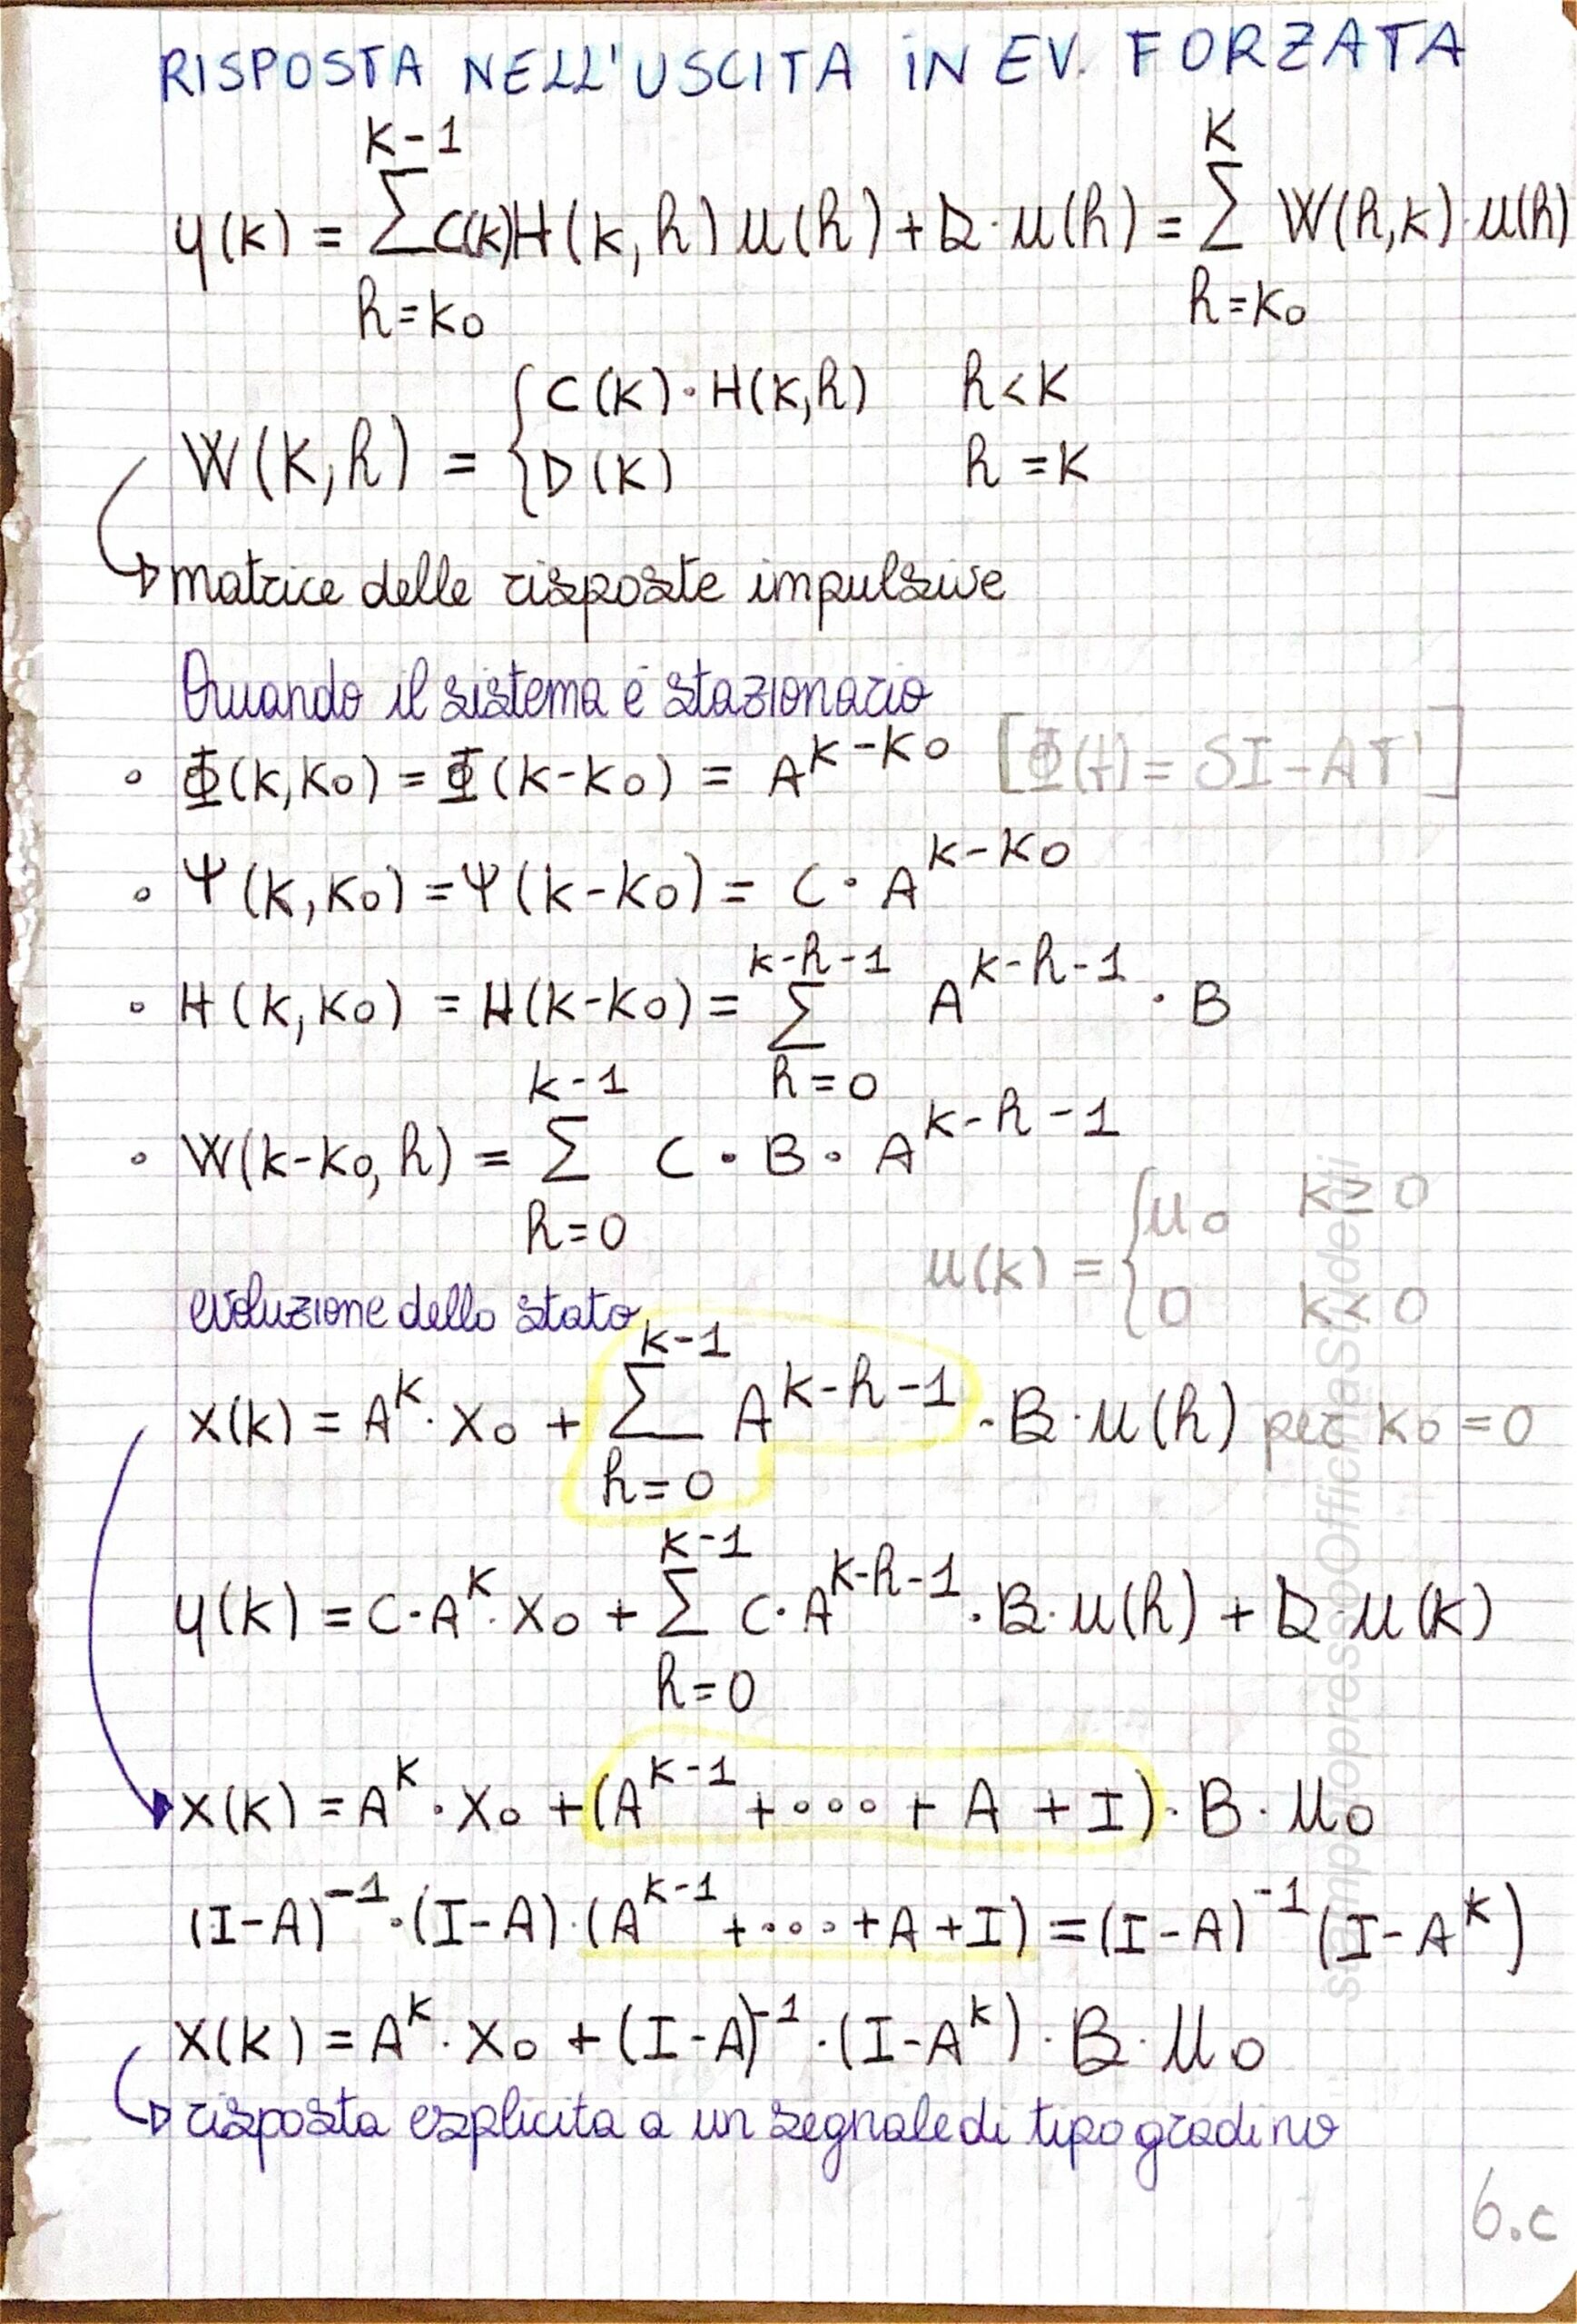 RISPOSTA NELL'USCITA IN EV. FORZATA
y(k) = Σ_{h=k₀}^{k-1} C(k)H(k,h)u(h) + D·u(h) = Σ_{h=k₀}^{k} W(h,k)·u(h)
W(k,h) = { C(k)·H(k,h) h<k
D(k) h=k
matrice delle risposte impulsive
Quando il sistema è stazionario
• Φ(k,k₀) = Φ(k-k₀) = A^{k-k₀} [Φ(t) = SI-AT']
• Ψ(k,k₀) = Ψ(k-k₀) = C·A^{k-k₀}
• H(k,k₀) = H(k-k₀) = Σ_{h=0}^{k-h-1} A^{k-h-1}·B
• W(k-k₀,h) = Σ_{h=0}^{k-1} C·B·A^{k-h-1}
u(k) = { u₀ k≥0
0 k<0
evoluzione dello stato
x(k) = A^k·x₀ + Σ_{h=0}^{k-1} A^{k-h-1}·B·u(h) per k₀=0
y(k) = C·A^k·x₀ + Σ_{h=0}^{k-1} C·A^{k-h-1}·B·u(h) + D·u(k)
x(k) = A^k·x₀ + (A^{k-1} + ···· + A + I)·B·u₀
(I-A)^{-1}·(I-A)·(A^{k-1} + ···· + A + I) = (I-A)^{-1}(I-A^k)
x(k) = A^k·x₀ + (I-A)^{-1}·(I-A^k)·B·u₀
risposta esplicita a un segnale di tipo gradino
6.c
stampatopressoOfficinaStudenti